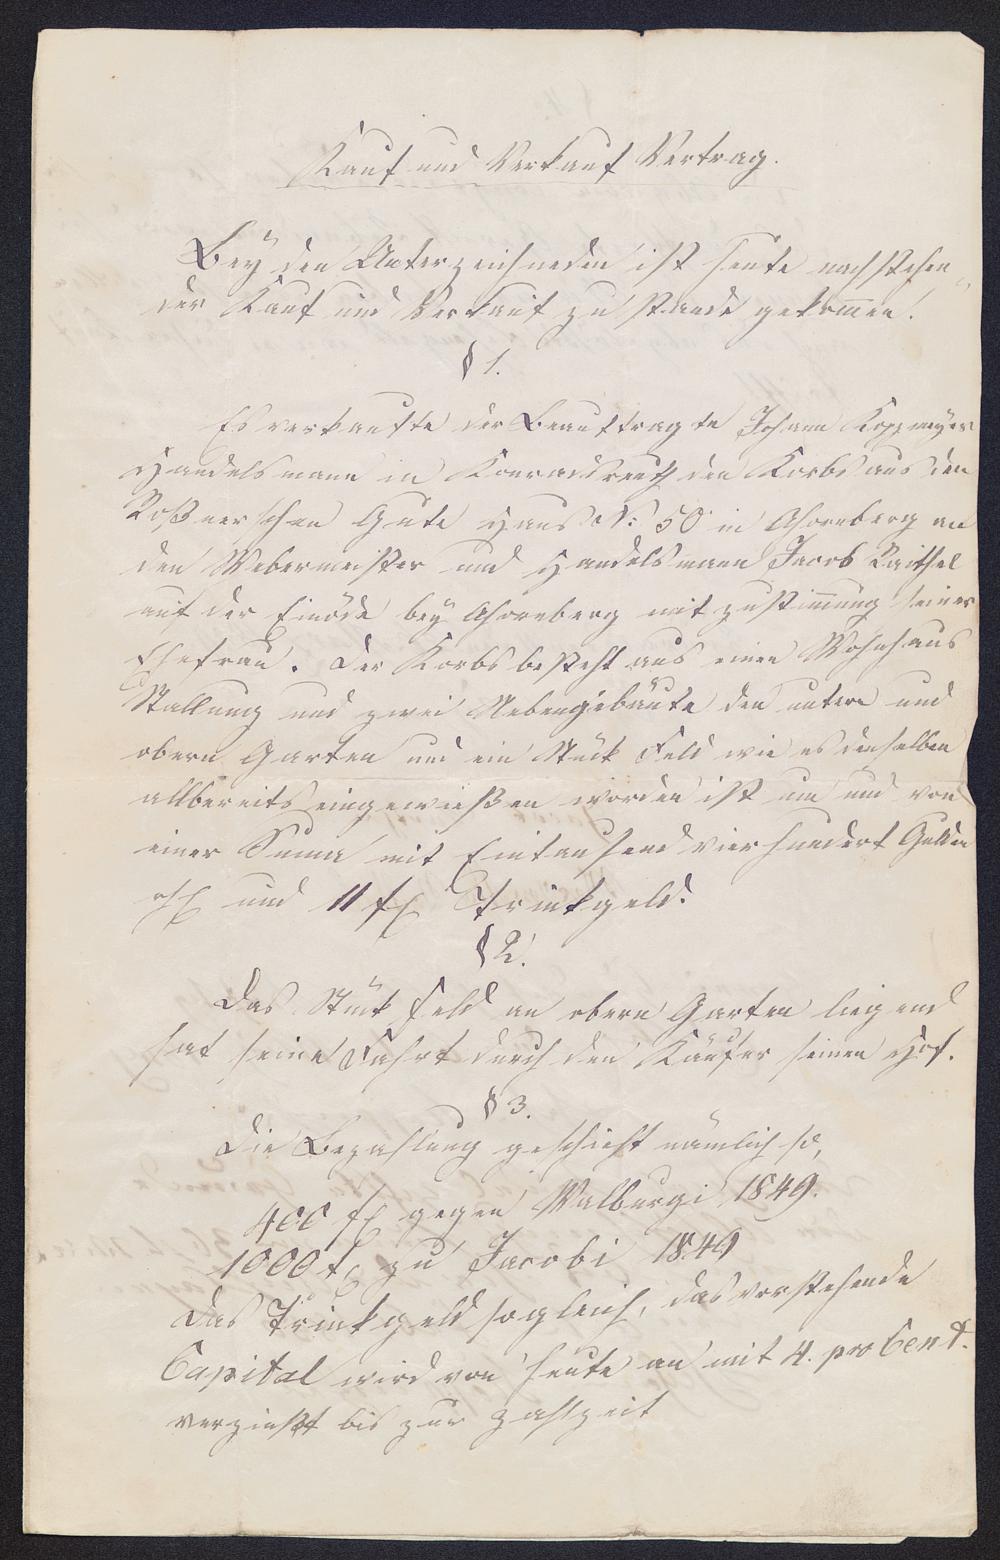 Kauf und Verkauf Vertrag.
Bey den Unterzeichneden ist heute nachstehen-
der Kauf und Verkauf zu stande gekommen.
§ 1.
Es verkaufte der Beauftragte Johann Koppmeyer
Handelsmann in Konradsreuth den Korbs aus den
Roßnerschen Gute Haus N: 50 in Ahornberg an
den Webermeister und Handelsmann Jacob Raithel
auf der Einöde bey Ahornberg mit zustimung seiner
Ehefrau. Der Korbs besteht aus einen Wohnhaus
Stallung und zwei Nebengebäute den untern und
obern Garten und ein Stück Feld wie es denselben
allbereits eingewießen worden ist um und von
einer Suma mit Eintausend vierhundert Gulden
und 11 fl Trinkgeld.
§ 2.
Das Stück Feld an obern Garten liegend
hat seine Fahrt durch den Käufer seinen Hof.
§ 3.
Die Bezahlung geschieht nämlich so,
400 fl gegen Walburgi 1849.
1000 fl zu Jacobi 1849
Das Trinkgeld sogleich, das vorstehende
Capital wird von heute an mit 4. pro Cent.
verzinßt bis zur Zahlzeit